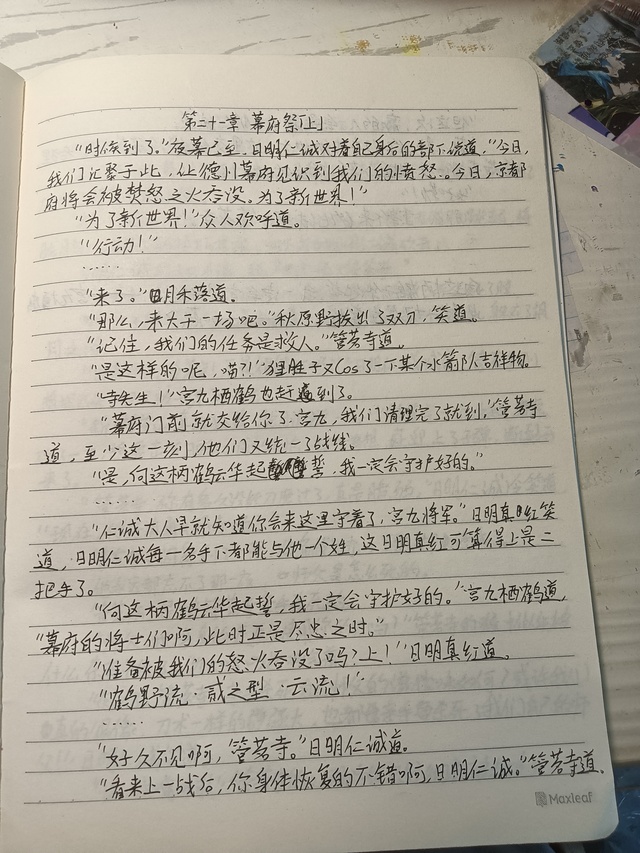 第二十一章 幕府祭「上」
“时候到了。”夜幕已至，日明仁诚对着自己身后的部下说道，“今日，
我们汇聚于此，让德川幕府见识到我们的愤怒。今日，京都
府将会被焚怒之火吞没。为了新世界！”
“为了新世界！”众人欢呼道。
“行动！”
……
“来了。”月禾落道。
“那么，来大干一场吧。”秋原野拔出了双刀，笑道。
“记住，我们的任务是救人。”管若寺道。
“是这样的呢，喵？！”狸胜子又Cos了一下某个水箭队吉祥物。
“寺先生！”宫九栖鹤也赶到了。
“幕府门前就交给你了，宫九，我们清理完了就到，”管若寺
道，至少这一刻，他们又统一了战线。
“是，向这柄鹤云华起誓，我一定会守护好的。”
……
“仁诚大人早就知道你会来这里守着了，宫九将军。”日明真红笑
道，日明仁诚每一名手下都能与他一个姓，这日明真红可算得上是二
把手了。
“向这柄鹤云华起誓，我一定会守护好的。”宫九栖鹤道，
“幕府的将士们啊，此时正是尽忠之时。”
“准备被我们的怒火吞没了吗？上！”日明真红道。
“鹤野流·贰之型·云流！”
……
“好久不见啊，管若寺。”日明仁诚道。
“看来上一战后，你身体恢复的不错啊，日明仁诚。”管若寺道，
Maxleaf